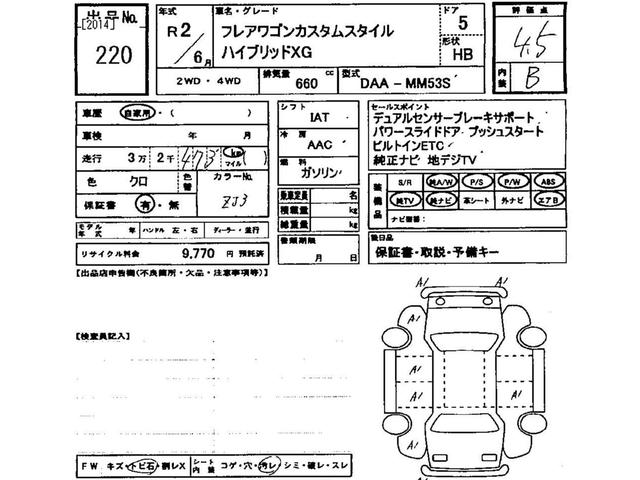 出品No.
[2014]
220
年式
R2/6月
車名・グレード
フレアワゴンカスタムスタイル
ハイブリッドXG
ドア
5
形状
HB
評価点
4.5
内装
B
2WD・4WD
排気量
660 cc
型式
DAA-MM53S
車歴 自家用・( )
車検 年 月
走行 3万 2千 473 (km マイル)
色 クロ
色替
カラーNo.
ZJ3
保証書 有・無
モデル年式 年 ハンドル 左・右 ディーラー・並行
リサイクル料金 9,770 円 預託済
シフト
IAT
冷房
AAC
燃料
ガソリン
乗車定員 名
積載量 kg
総重量 kg
書類期限
月 日
セールスポイント
デュアルセンサーブレーキサポート
パワースライドドア プッシュスタート
ビルトインETC
純正ナビ 地デジTV
装備品
S/R 純A/W P/S P/W ABS
純TV 純ナビ 革シート 外ナビ エアB
ナビ種類( )
後日品
保証書・取説・予備キー
【出品店申告欄(不良箇所・欠品・注意事項等)】
【検査員記入】
A1
A1
A1
A1
A1
A1
A1
FW キズ・トビ石・割レX
シート内装 コゲ・穴・汚レ・シミ・破レ・スレ